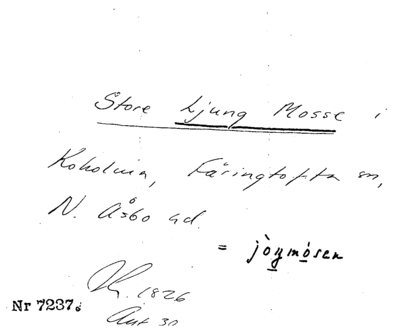 Store Ljung Mosse i
Koholma, Färingtofta sn,
N. Åsbo hd.
= jòŋmósen
1826
Nr 7237.
Ant 30